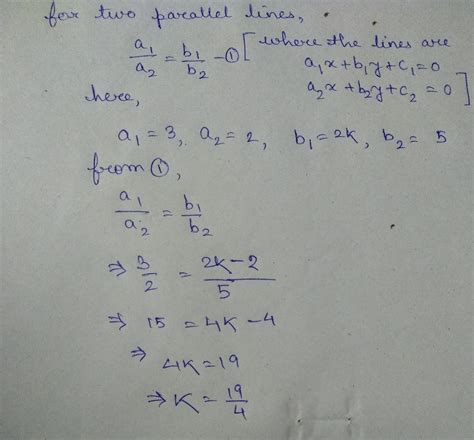 for two parallel lines,
a₁/a₂ = b₁/b₂ - ① [where the lines are
a₁x + b₁y + c₁ = 0
a₂x + b₂y + c₂ = 0]
here,
a₁ = 3, a₂ = 2, b₁ = 2K, b₂ = 5
from ①,
a₁/a₂ = b₁/b₂
⇒ 3/2 = 2K-2/5
⇒ 15 = 4K - 4
⇒ 4K = 19
⇒ K = 19/4